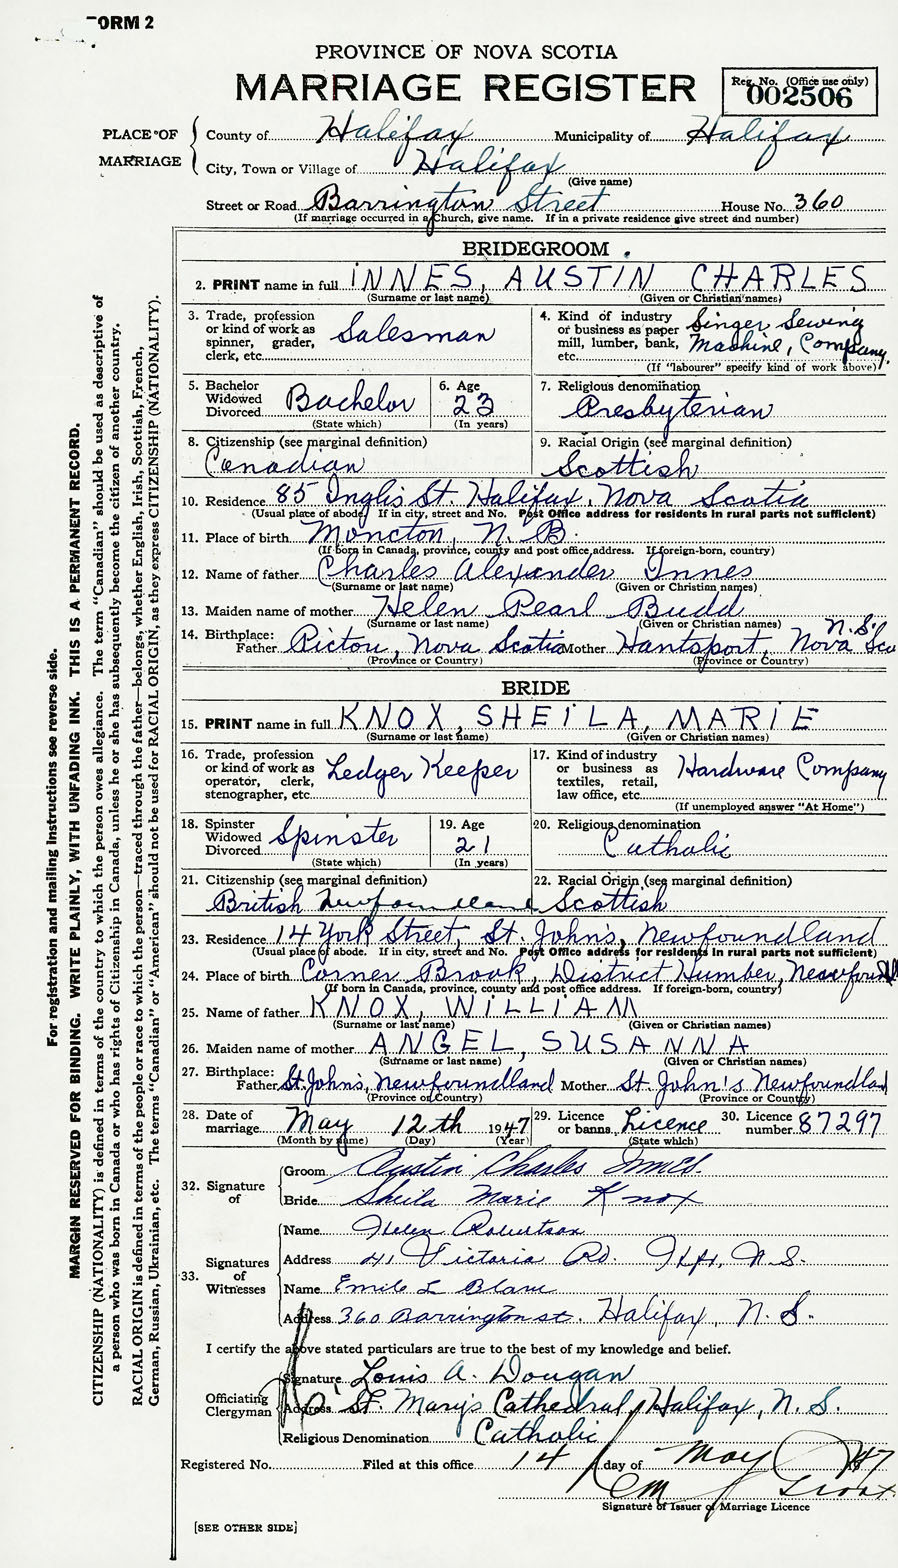 FORM 2
PROVINCE OF NOVA SCOTIA
MARRIAGE REGISTER
Reg. No. (Office use only)
002506
PLACE OF MARRIAGE
County of Halifax Municipality of Halifax
City, Town or Village of Halifax
(Give name)
Street or Road Barrington Street House No. 360
(If marriage occurred in a Church, give name. If in a private residence give street and number)
BRIDEGROOM
2. PRINT name in full INNES, AUSTIN CHARLES
(Surname or last name) (Given or Christian names)
3. Trade, profession or kind of work as spinner, grader, clerk, etc. Salesman
4. Kind of industry or business as paper mill, lumber, bank, etc. Singer Sewing Machine, Company.
(If "labourer" specify kind of work above)
5. Bachelor Widowed Divorced Bachelor
(State which)
6. Age 23
(In years)
7. Religious denomination
Presbyterian
8. Citizenship (see marginal definition)
Canadian
9. Racial Origin (see marginal definition)
Scottish
10. Residence 85 Inglis St. Halifax, Nova Scotia
(Usual place of abode. If in city, street and No. Post Office address for residents in rural parts not sufficient)
11. Place of birth Moncton, N. B.
(If born in Canada, province, county and post office address. If foreign-born, country)
12. Name of father Charles Alexander Innes
(Surname or last name) (Given or Christian names)
13. Maiden name of mother Helen Pearl Budd
(Surname or last name) (Given or Christian names)
N.S.
14. Birthplace: Father Pictou, Nova Scotia Mother Hantsport, Nova Sco
(Province or Country) (Province or Country)
BRIDE
15. PRINT name in full KNOX, SHEILA, MARIE
(Surname or last name) (Given or Christian names)
16. Trade, profession or kind of work as operator, clerk, stenographer, etc. Ledger Keeper
17. Kind of industry or business as textiles, retail, law office, etc. Hardware Company
(If unemployed answer "At Home")
18. Spinster Widowed Divorced Spinster
(State which)
19. Age 21
(In years)
20. Religious denomination
Catholic
21. Citizenship (see marginal definition)
British Newfoundland
22. Racial Origin (see marginal definition)
Scottish
23. Residence 14 York Street, St. John's, Newfoundland
(Usual place of abode. If in city, street and No. Post Office address for residents in rural parts not sufficient)
24. Place of birth Corner Brook, District Humber, Newfound
(If born in Canada, province, county and post office address. If foreign-born, country)
25. Name of father KNOX, WILLIAM
(Surname or last name) (Given or Christian names)
26. Maiden name of mother ANGEL, SUSANNA
(Surname or last name) (Given or Christian names)
27. Birthplace: Father St. John's, Newfoundland Mother St. John's Newfoundlan
(Province or Country) (Province or Country)
28. Date of marriage May 12th 1947
(Month by name) (Day) (Year)
29. Licence or banns Licence
(State which)
30. Licence number 87297
32. Signature of
Groom Austin Charles Innes.
Bride Sheila Marie Knox
33. Signatures of Witnesses
Name Helen Robertson
Address 41 Victoria Rd. Hfx, N.S.
Name Emile L Blanc
Address 360 Barrington st. Halifax, N. S.
I certify the above stated particulars are true to the best of my knowledge and belief.
Officiating Clergyman
Signature Louis A. Dougan
Address St. Mary's Cathedral, Halifax, N. S.
Religious Denomination Catholic
Registered No. Filed at this office 14 day of May 1947
Signature of Issuer of Marriage Licence
[SEE OTHER SIDE]
For registration and mailing instructions see reverse side.
MARGIN RESERVED FOR BINDING. WRITE PLAINLY, WITH UNFADING INK. THIS IS A PERMANENT RECORD.
CITIZENSHIP (NATIONALITY) is defined in terms of the country to which the person owes allegiance. The term "Canadian" should be used as descriptive of
a person who was born in Canada or who has rights of Citizenship in Canada, unless he or she has subsequently become the citizen of another country.
RACIAL ORIGIN is defined in terms of the people or race to which the person—traced through the father—belongs, whether English, Irish, Scottish, French,
German, Russian, Ukrainian, etc. The terms "Canadian" or "American" should not be used for RACIAL ORIGIN, as they express CITIZENSHIP (NATIONALITY).